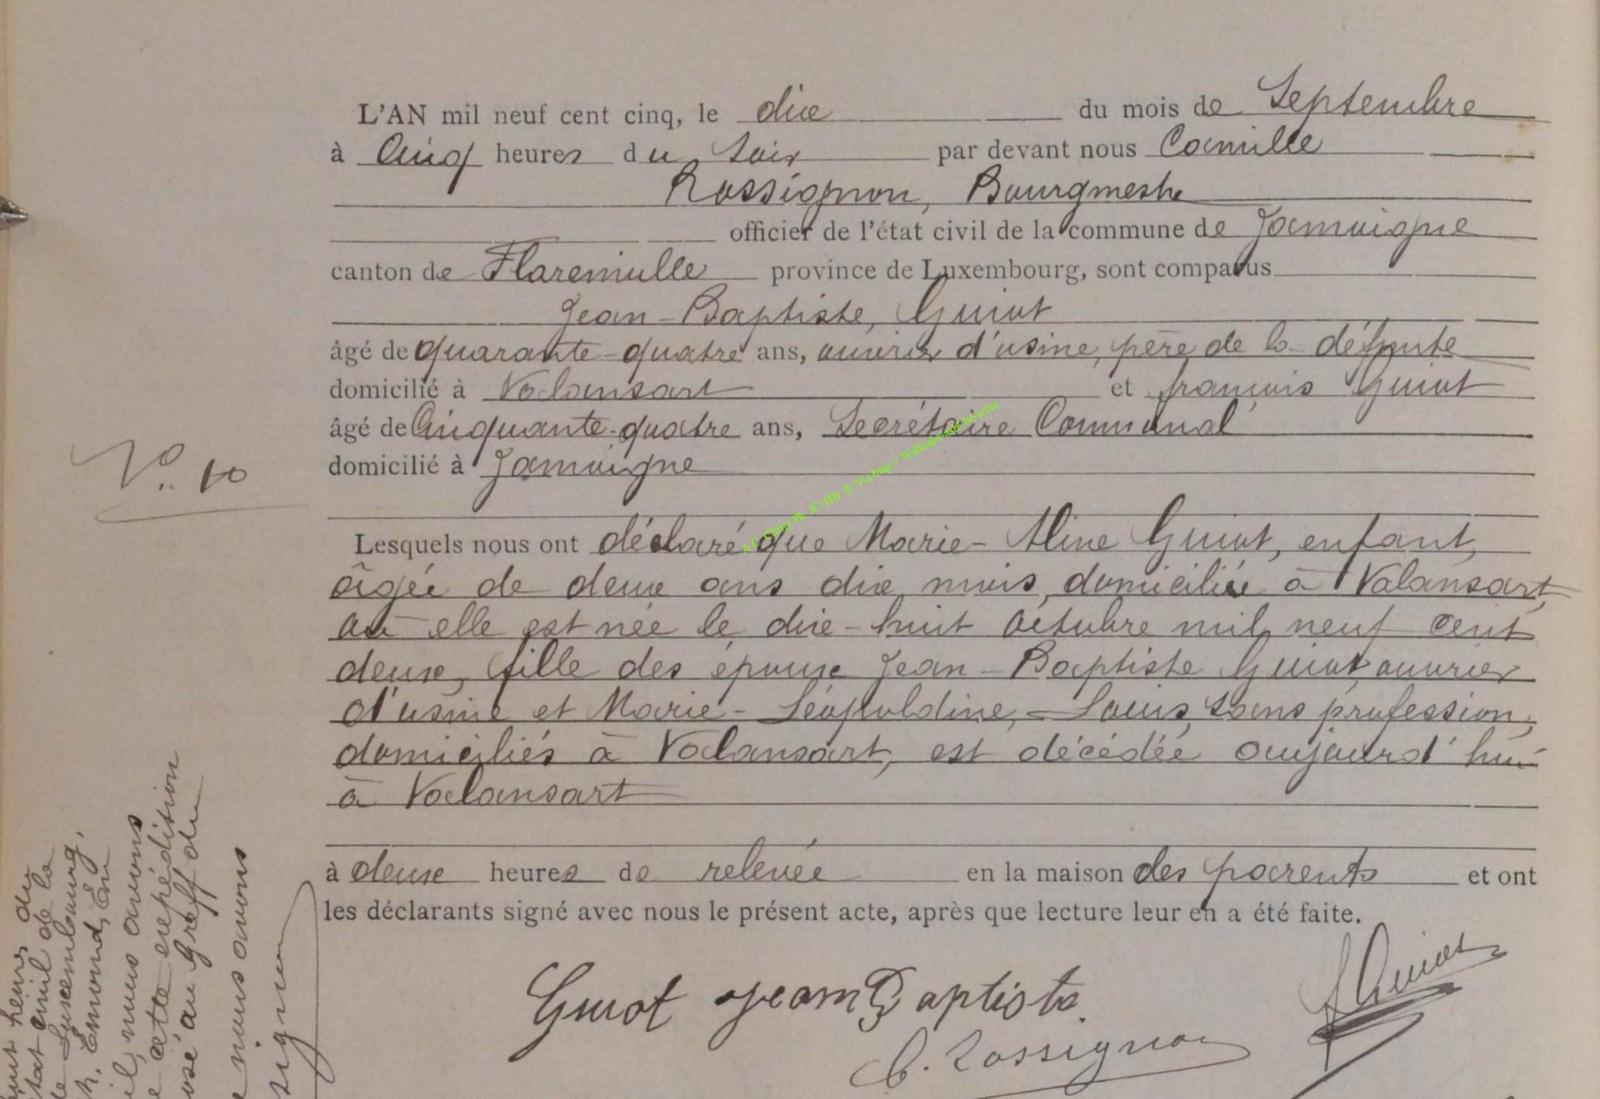 L'AN mil neuf cent cinq, le dix du mois de Septembre
à Cinq heures du Soir par devant nous Camille
Rossignon, Bourgmestre
officier de l'état civil de la commune de Jamoigne
canton de Florenville province de Luxembourg, sont comparus
Jean-Baptiste, Guiot
âgé de quarante-quatre ans, ouvrier d'usine, père de la défunte
domicilié à Valansart et françois Guiot
âgé de Cinquante-quatre ans, Secrétaire Communal
domicilié à Jamoigne
N° 10
Lesquels nous ont déclaré que Marie-Aline Guiot, enfant,
âgée de deux ans dix mois, domiciliée à Valansart,
où elle est née le dix-huit Octobre mil neuf cent
deux, fille des époux Jean-Baptiste Guiot, ouvrier
d'usine et Marie-Léopoldine, Louis, sans profession,
domiciliés à Valansart, est décédée aujourd'hui
à Valansart
à deux heures de relevée en la maison des parents et ont
les déclarants signé avec nous le présent acte, après que lecture leur en a été faite.
Guiot Jean Baptiste
F Guiot
C. Rossignon
heures du
état civil de la
de Luxembourg,
Emond, En
nous avons
cette expédition
au Greffe du
nous avons